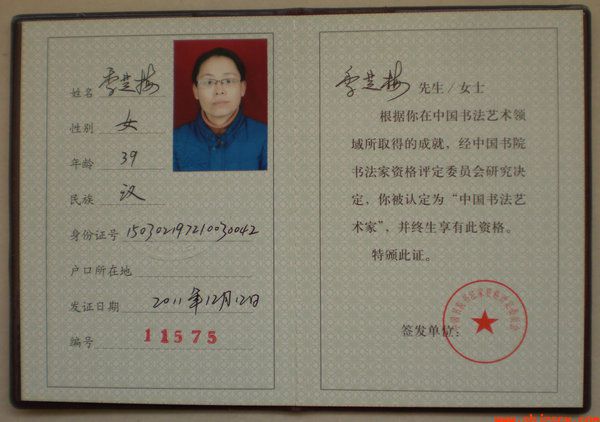 姓名
性别 女
年龄 39
民族 汉
身份证号 150302197210030042
户口所在地
发证日期 2011年12月12日
编号 11575
先生/女士
根据你在中国书法艺术领
域所取得的成就，经中国书院
书法家资格评定委员会研究决
定，你被认定为“中国书法艺
术家”，并终生享有此资格。
特颁此证。
签发单位：
中国书院书法家资格评定委员会